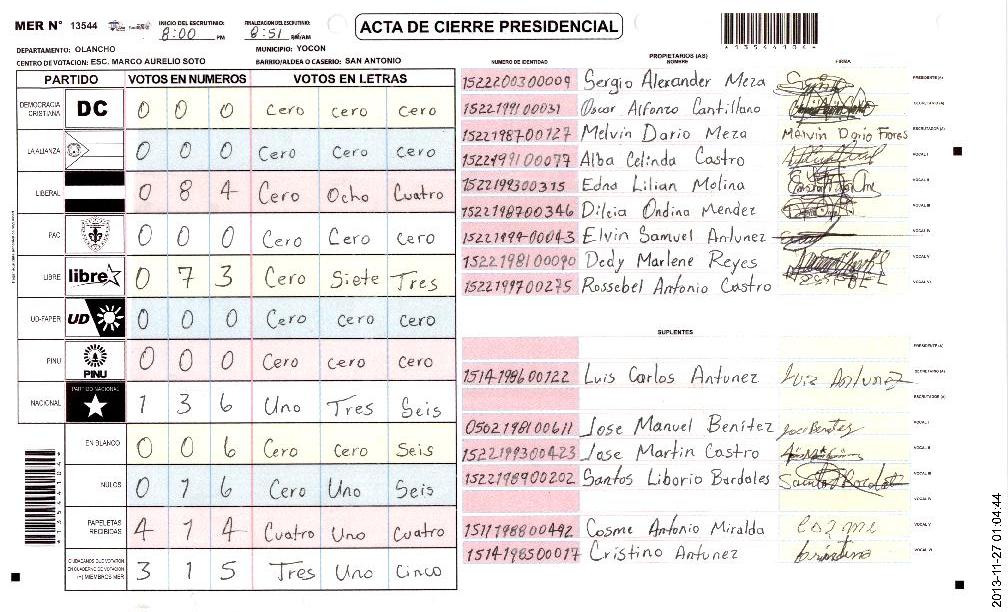 MER N° 13544
INICIO DEL ESCRUTINIO: 8:00 PM
FINALIZACION DEL ESCRUTINIO: 8:51 PM/AM
ACTA DE CIERRE PRESIDENCIAL
*13544104*
DEPARTAMENTO: OLANCHO
MUNICIPIO: YOCON
CENTRO DE VOTACION: ESC. MARCO AURELIO SOTO
BARRIO/ALDEA O CASERIO: SAN ANTONIO
PARTIDO VOTOS EN NUMEROS VOTOS EN LETRAS
DEMOCRACIA CRISTIANA DC 0 0 0 Cero Cero Cero
LA ALIANZA 0 0 0 Cero Cero Cero
LIBERAL 0 8 4 Cero Ocho Cuatro
PAC 0 0 0 Cero Cero Cero
LIBRE libre 0 7 3 Cero Siete Tres
UD-FAPER UD 0 0 0 Cero Cero Cero
PINU PINU 0 0 0 Cero Cero Cero
NACIONAL PARTIDO NACIONAL 1 3 6 Uno Tres Seis
EN BLANCO 0 0 6 Cero Cero Seis
NULOS 0 1 6 Cero Uno Seis
PAPELETAS RECIBIDAS 4 1 4 Cuatro Uno Cuatro
CIUDADANOS QUE VOTARON EN CUADERNO DE VOTACION (+) MIEMBROS MER 3 1 5 Tres Uno Cinco
PROPIETARIOS (AS)
NUMERO DE IDENTIDAD NOMBRE FIRMA
1522200300009 Sergio Alexander Meza PRESIDENTE (A)
1522199100031 Oscar Alfonzo Cantillano SECRETARIO (A)
1522198700127 Melvin Dario Meza Melvin Dario Flores ESCRUTADOR (A)
1522199100077 Alba Celinda Castro VOCAL I
1522199300315 Edna Lilian Molina VOCAL II
1522198700346 Dilcia Ondina Mendez VOCAL III
1522199400043 Elvin Samuel Antunez VOCAL IV
1522198100090 Dedy Marlene Reyes VOCAL V
1522199700275 Rossebel Antonio Castro VOCAL VI
SUPLENTES
PRESIDENTE (A)
1514198600122 Luis Carlos Antunez Luis Antunez SECRETARIO (A)
ESCRUTADOR (A)
0502198100611 Jose Manuel Benitez Jose Benitez VOCAL I
1522199300423 Jose Martin Castro VOCAL II
1522198900202 Santos Liborio Bardales VOCAL III
VOCAL IV
1511198800492 Cosme Antonio Miralda Cosme VOCAL V
1514198500017 Cristino Antunez Cristino VOCAL VI
2013-11-27 01:04:44